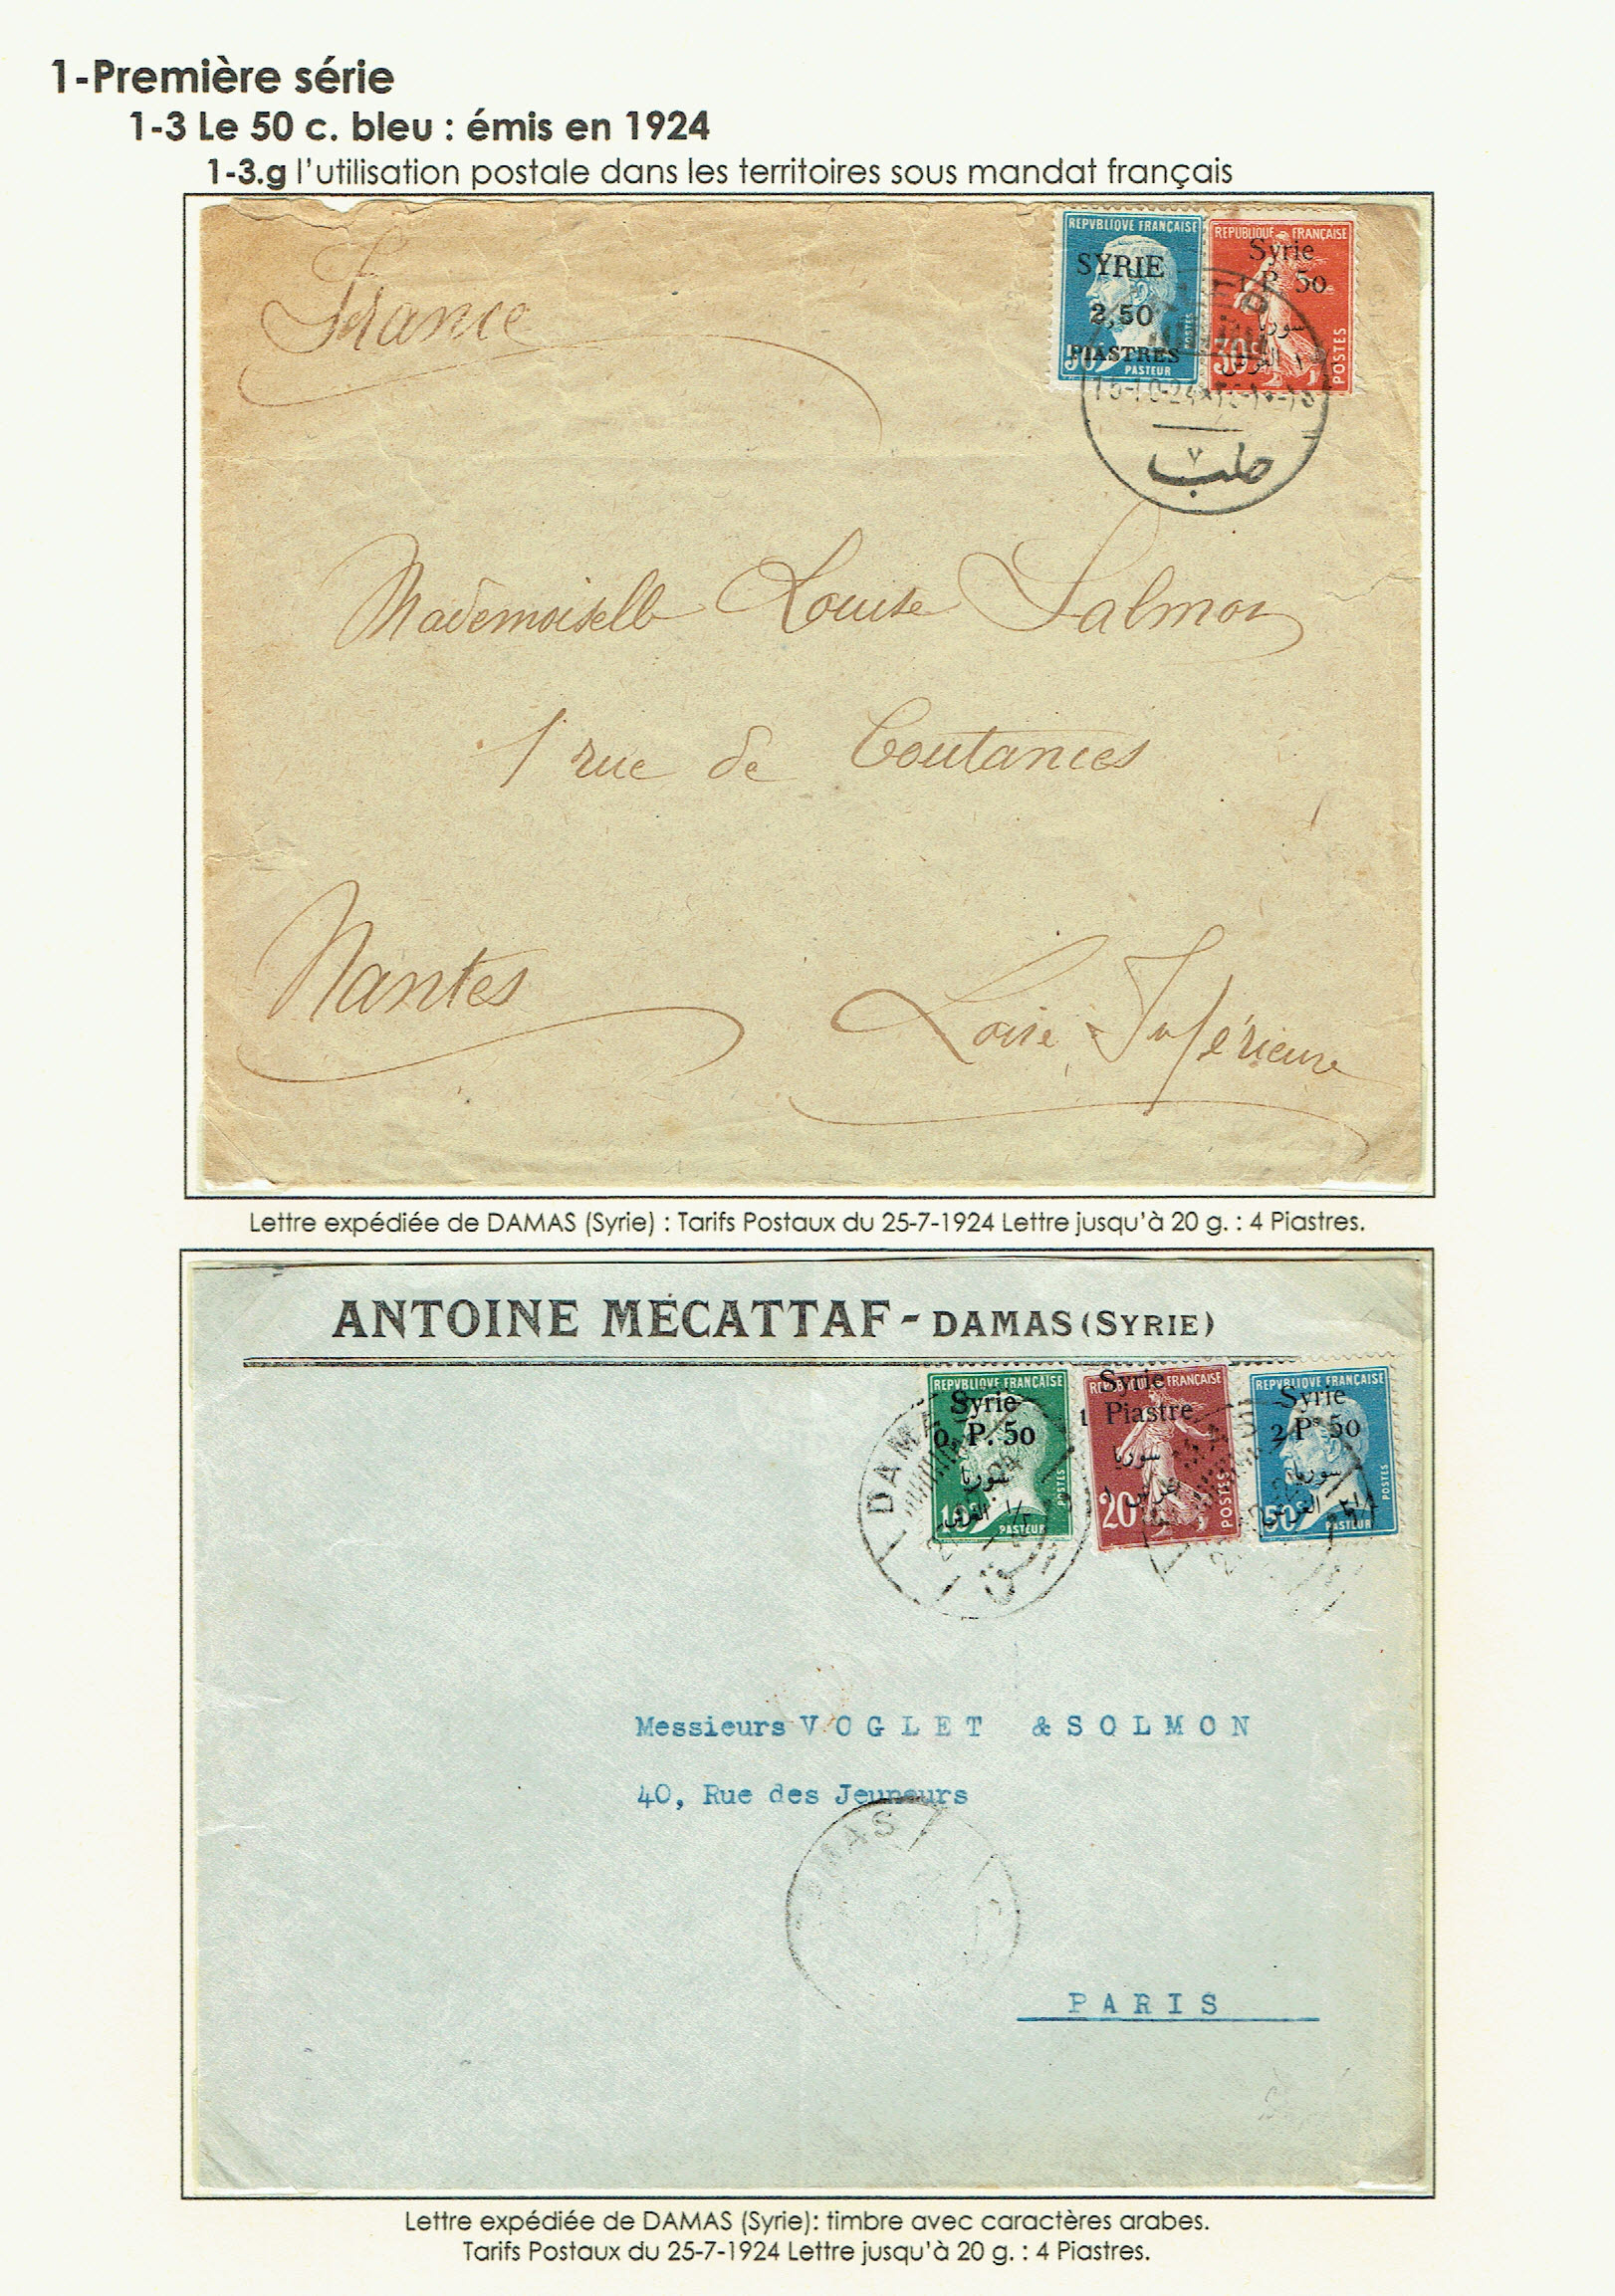 1-Première série
1-3 Le 50 c. bleu : émis en 1924
1-3.g l'utilisation postale dans les territoires sous mandat français
France
REPVBLIQVE FRANÇAISE
SYRIE
2,50
PIASTRES
50c
PASTEUR
POSTES
REPUBLIQUE FRANÇAISE
Syrie
1 P. 50
سوريا
30c
POSTES
15-10-24
حلب
٧
Mademoiselle Louise Salmon
1 rue de Coutances
Nantes
Loire Inférieure
Lettre expédiée de DAMAS (Syrie) : Tarifs Postaux du 25-7-1924 Lettre jusqu'à 20 g. : 4 Piastres.
ANTOINE MÉCATTAF - DAMAS (SYRIE)
REPVBLIQVE FRANÇAISE
Syrie
0, P. 50
سوريا
10c
PASTEUR
POSTES
Syrie
1 Piastre
سوريا
غرش ١
20c
POSTES
REPVBLIQVE FRANÇAISE
Syrie
2 Ps 50
سوريا
50c
PASTEUR
POSTES
Messieurs VOGLET & SOLMON
40, Rue des Jeuneurs
DAMAS
PARIS
Lettre expédiée de DAMAS (Syrie): timbre avec caractères arabes.
Tarifs Postaux du 25-7-1924 Lettre jusqu'à 20 g. : 4 Piastres.